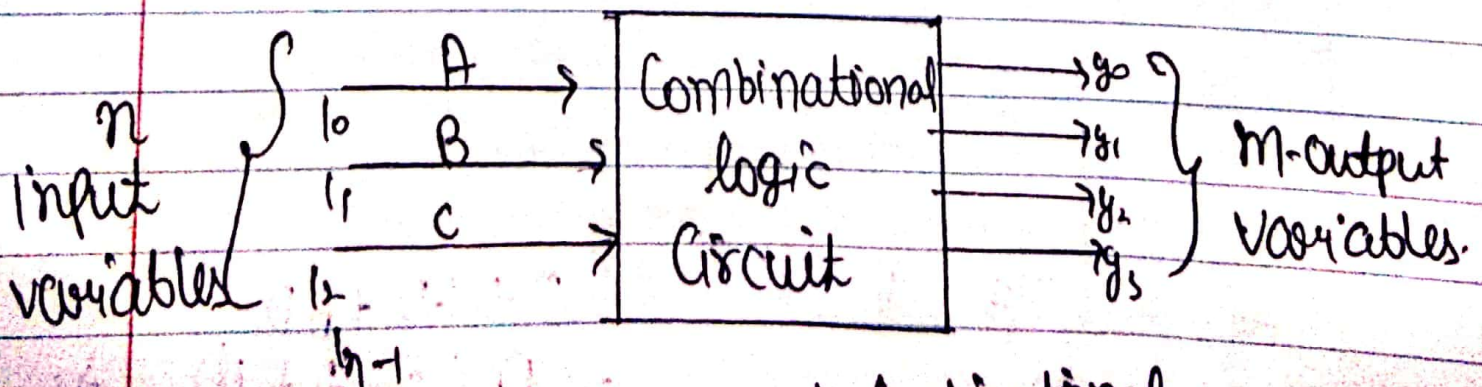 n
input
variables
A
I0
B
I1
C
I2
In-1
Combinational
logic
Circuit
y0
y1
y2
y3
m-output
variables.